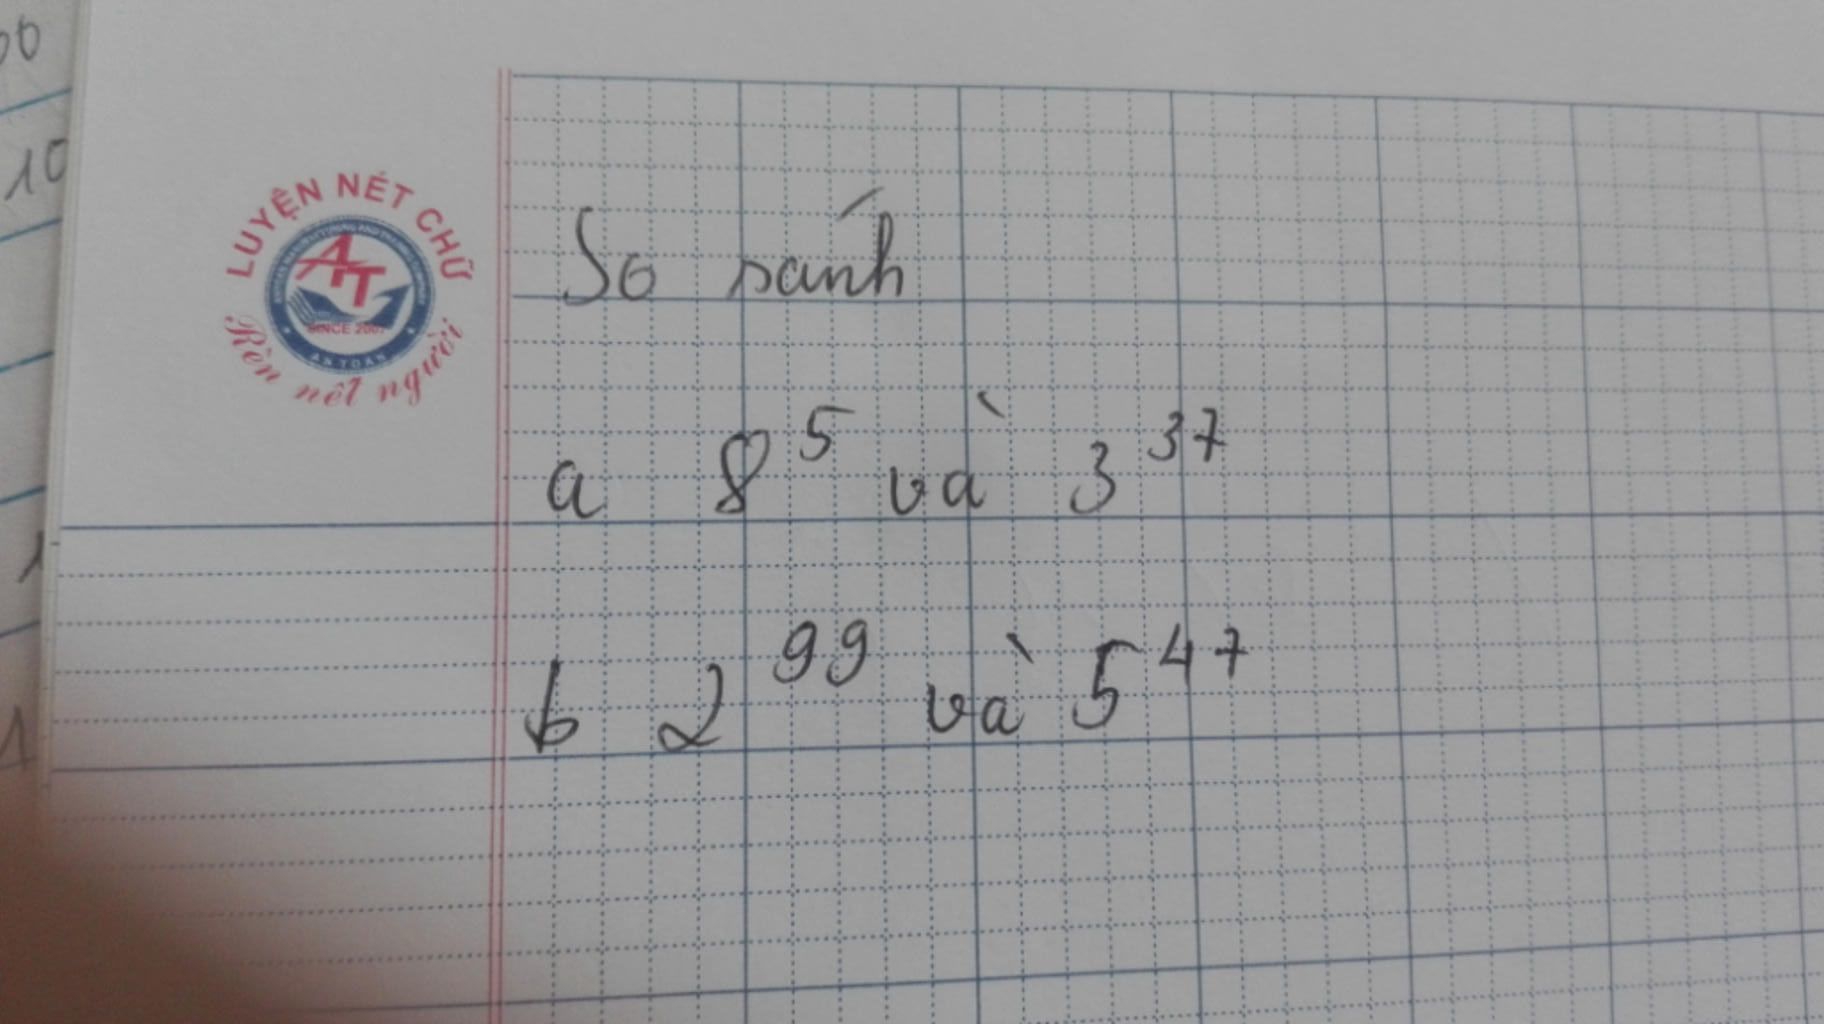 00
10
LUYỆN NÉT CHỮ
AT
SINCE 2007
AN TOÀN
Rèn nét người
So sánh
a 8⁵ và 3³⁷
b 2⁹⁹ và 5⁴⁷
1
1